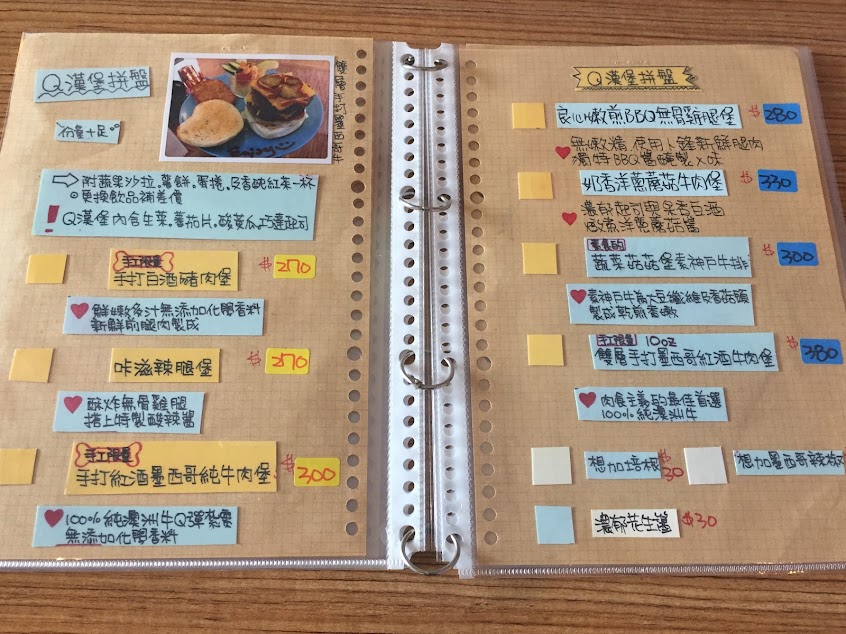 Q漢堡拼盤
份量十足
雙層手打墨西哥牛
Enjoy
附蔬果沙拉、薯餅、蛋捲、及香醇紅茶一杯
更換飲品補差價
Q漢堡內含生菜、蕃茄片、酸黃瓜、巧達起司
手工限量
手打白酒豬肉堡 $270
鮮嫩多汁無添加化學香料
新鮮前腿肉製成
咔滋辣腿堡 $270
酥炸無骨雞腿
搭上特製酸辣醬
手工限量
手打紅酒墨西哥純牛肉堡 $300
100%純澳洲牛Q彈紮實
無添加化學香料
Q漢堡拼盤
良心嫩煎BBQ無骨雞腿堡 $280
無嫩精 使用卜蜂新鮮腿肉
獨特BBQ醬醃製入味
奶香洋蔥蘑菇牛肉堡 $330
濃郁起司與果香白酒
蘑菇醬
素食的
蔬菜菇菇堡素神戶牛排 $300
素神戶牛為大豆纖維及香菇頭
製成乾煎香嫩
手工限量 10oz
雙層手打墨西哥紅酒牛肉堡 $380
肉食主義的最佳首選
100%純澳洲牛
想加培根 $30
想加墨西哥辣椒
濃郁花生醬 $30